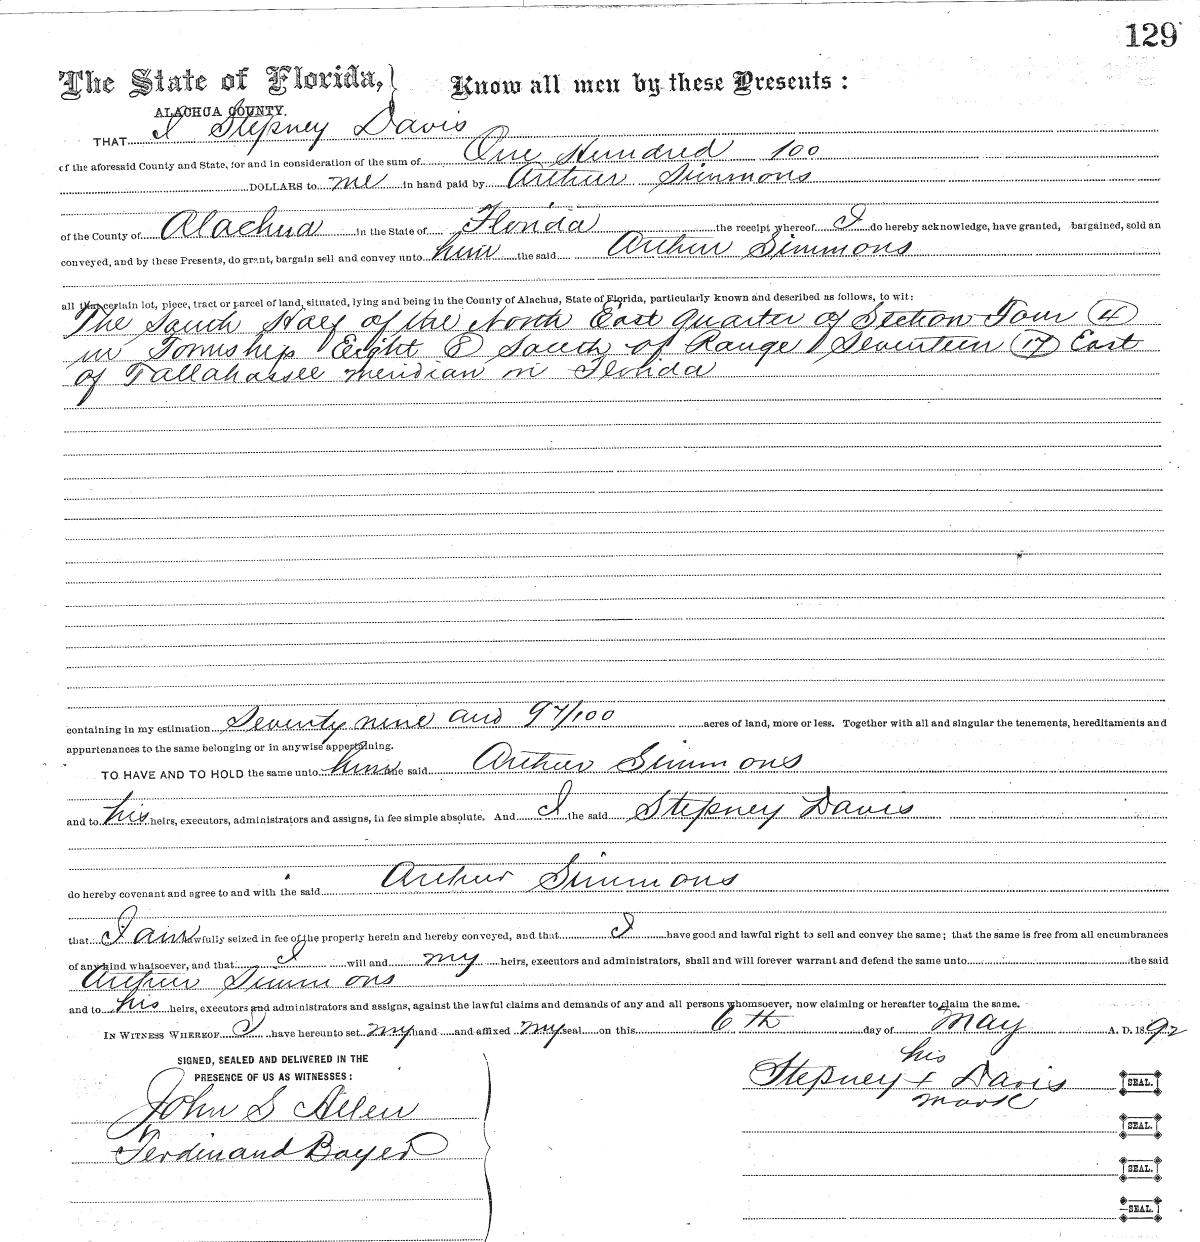 129
The State of Florida, } Know all men by these Presents :
ALACHUA COUNTY.
THAT I Stepney Davis
of the aforesaid County and State, for and in consideration of the sum of One Hundred 100
DOLLARS to me in hand paid by Arthur Simmons
of the County of Alachua in the State of Florida the receipt whereof I do hereby acknowledge, have granted, bargained, sold an
conveyed, and by these Presents, do grant, bargain sell and convey unto him the said Arthur Simmons
all that certain lot, piece, tract or parcel of land, situated, lying and being in the County of Alachua, State of Florida, particularly known and described as follows, to wit:
The South Half of the North East quarter of Section Four (4)
in Township Eight (8) South of Range Seventeen (17) East
of Tallahassee meridian in Florida
containing in my estimation Seventy nine and 97/100 acres of land, more or less. Together with all and singular the tenements, hereditaments and
appurtenances to the same belonging or in anywise appertaining.
TO HAVE AND TO HOLD the same unto him the said Arthur Simmons
and to his heirs, executors, administrators and assigns, in fee simple absolute. And I the said Stepney Davis
do hereby covenant and agree to and with the said Arthur Simmons
that I am lawfully seized in fee of the property herein and hereby conveyed, and that I have good and lawful right to sell and convey the same; that the same is free from all encumbrances
of any kind whatsoever, and that I will and my heirs, executors and administrators, shall and will forever warrant and defend the same unto the said
Arthur Simmons
and to his heirs, executors and administrators and assigns, against the lawful claims and demands of any and all persons whomsoever, now claiming or hereafter to claim the same.
IN WITNESS WHEREOF I have hereunto set my hand and affixed my seal on this 6th day of May A. D. 1892
SIGNED, SEALED AND DELIVERED IN THE
PRESENCE OF US AS WITNESSES :
his
Stepney + Davis SEAL.
mark
John S Allen
SEAL.
Ferdinand Bayer
SEAL.
SEAL.